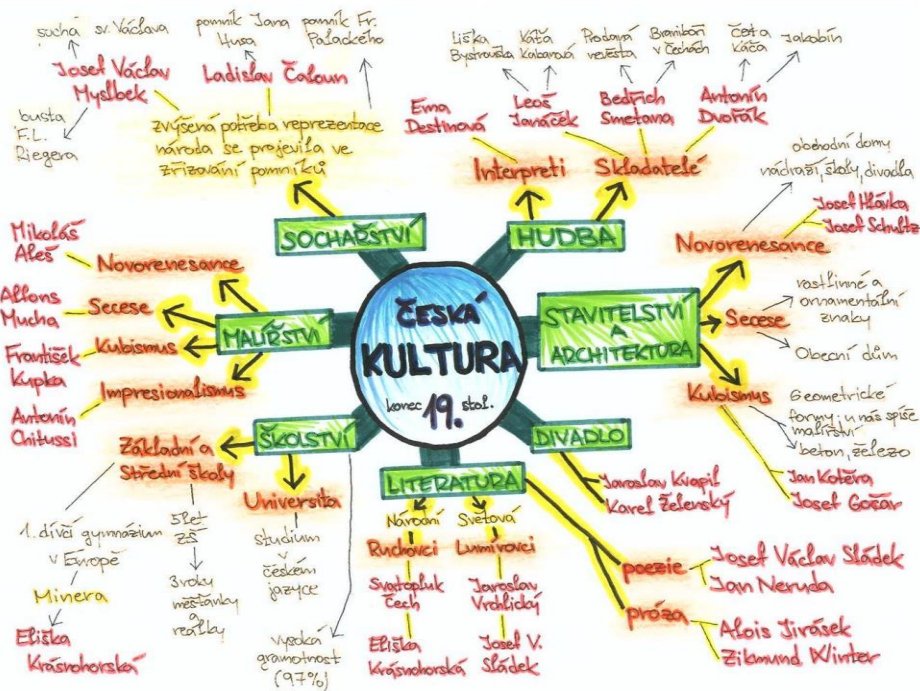 ČESKÁ
KULTURA
konec 19. stol.
SOCHAŘSTVÍ
zvýšená potřeba reprezentace
národa se projevila ve
zřizování pomníků
Josef Václav
Myslbek
suchá
sv. Václava
busta
F.L.
Riegera
Ladislav Čaloun
pomník Jana
Husa
pomník Fr.
Palackého
HUDBA
Interpreti
Ema
Destinová
Skladatelé
Leoš
Janáček
Liška
Bystrouška
Káťa
Kabanová
Bedřich
Smetana
Prodaná
nevěsta
Braniboři
v Čechách
Antonín
Dvořák
Čert a
Káča
Jakobín
STAVITELSTVÍ
A
ARCHITEKTURA
Novorenesance
obchodní domy
nádraží, školy, divadla
Josef Hlávka
Josef Schultz
Secese
rostlinné a
ornamentální
znaky
Obecní dům
Kubismus
Geometrické
formy; u nás spíše
malířství
beton, železo
Jan Kotěra
Josef Gočár
DIVADLO
Jaroslav Kvapil
Karel Želenský
LITERATURA
Národní
Ruchovci
Svatopluk
Čech
Eliška
Krásnohorská
Světová
Lumírovci
Jaroslav
Vrchlický
Josef V.
Sládek
poezie
Josef Václav Sládek
Jan Neruda
próza
Alois Jirásek
Zikmund Winter
ŠKOLSTVÍ
Základní a
Střední školy
1. dívčí gymnázium
v Evropě
Minera
Eliška
Krásnohorská
5 let
ZŠ
3 roky
měšťanky
a
reálky
Universita
studium
v
českém
jazyce
vysoká
gramotnost
(97%)
MALÍŘSTVÍ
Novorenesance
Mikoláš
Aleš
Secese
Alfons
Mucha
Kubismus
František
Kupka
Impresionalismus
Antonín
Chitussi